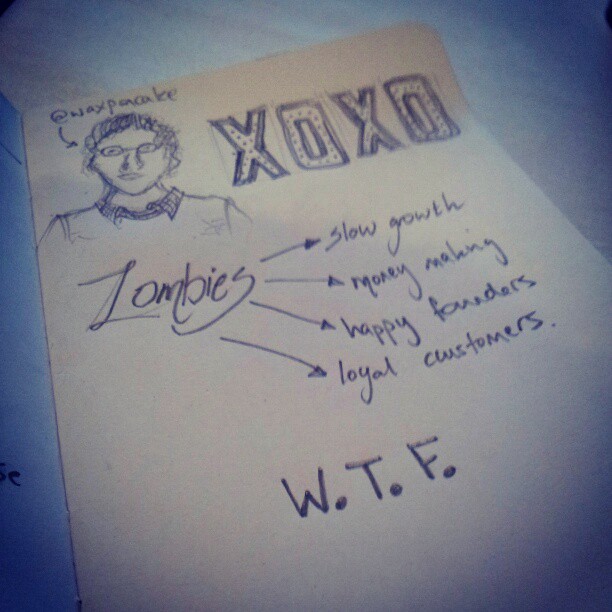 @waxpancake
XOXO
Zombies
slow growth
money making
happy founders
loyal customers.
W.T.F.